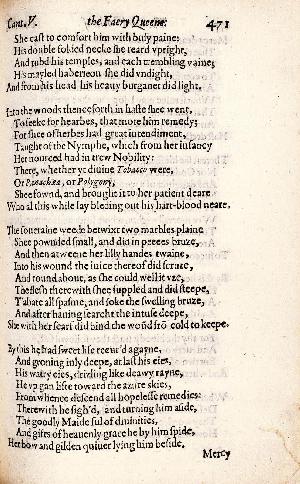 Cant. V. the Faery Queene. 471
She cast to comfort him with busy paine:
His double folded necke she reard vpright,
And rubd his temples, and each trembling vaine;
His mayled haberieon she did vndight,
And from his head his heauy burganet did light.
Into the woods thenceforth in haste shee went,
To seeke for hearbes, that mote him remedy;
For shee of herbes had great intendiment,
Taught of the Nymphe, which from her infancy
Her nourced had in trew Nobility:
There, whether yt diuine Tobacco were,
Or Panachæa, or Polygony,
Shee fownd, and brought it to her patient deare
Who al this while lay bleding out his hart-blood neare.
The soueraine weede betwixt two marbles plaine
Shee pownded small, and did in peeces bruze,
And then atweene her lilly handes twaine,
Into his wound the iuice thereof did scruze,
And round about, as she could well it vze,
The flesh therewith shee suppled and did steepe,
T'abate all spasme, and soke the swelling bruze,
And after hauing searcht the intuse deepe,
She with her scarf did bind the woũd frõ cold to keepe.
By this he had sweet life recur'd agayne,
And groning inly deepe, at last his eies,
His watry eies, drizling like deawy rayne,
He vp gan lifte toward the azure skies,
From whence descend all hopelesse remedies:
Therewith he sigh'd, and turning him aside,
The goodly Maide ful of diuinities,
And gifts of heauenly grace he by him spide,
Her bow and gilden quiuer lying him beside.
Mercy